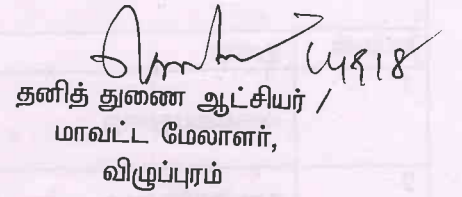 தனித் துணை ஆட்சியர் /
மாவட்ட மேலாளர்,
விழுப்புரம்